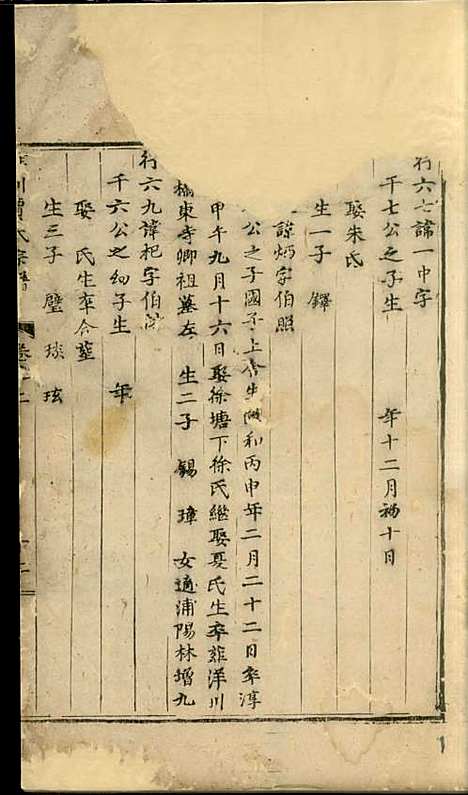 行六七諱一中字
千七公之子生 年十二月初十日
娶朱氏
生一子 鐸
諒炳字伯照
公之子國子上舍生 和丙申年二月二十二日卒淳
甲午九月十六日娶徐塘下徐氏繼娶夏氏生卒 洋川
東寺卿祖墓左 生二子 錫 璋 女適浦陽林增九
行六九諱杞字伯
千六公之幼子生 年
娶 氏生卒合塟
生三子 璧 琰 玹
川賈氏宗譜 卷之二